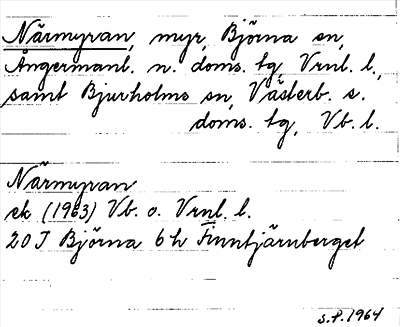 Närmyran, myr, Björna sn,
Ångermanl. n. doms. tg, Vrnl. l.,
samt Bjurholms sn, Västerb. s.
doms. tg, Vb. l.
Närmyran
ek (1963) Vb. o. Vrnl. l.
20 J Björna 6 h Finntjärnberget
S.P. 1964